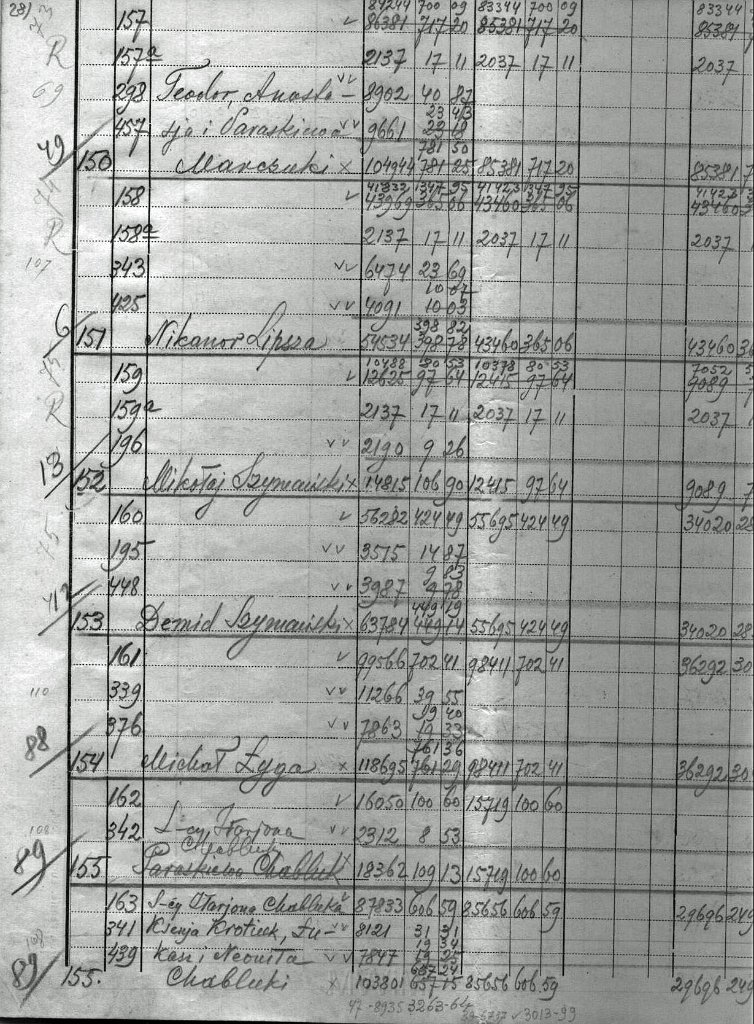 84244 700 09 83344 700 09 83344
157 86381 717 20 85381 717 20 85381
R 157a 2137 17 11 2037 17 11 2037
298 Teodor, Anasta- 8902 40 87
23 43
457 zja i Paraskiewa 9661 23 18
781 50
49 150 Marczuki x 104944 781 25 85381 717 20 85381
41832 1347 95 41423 1347 95 41423
158 43969 365 06 43460 365 06 43460
R 158a 2137 17 11 2037 17 11 2037
107 343 6474 23 69
10 07
425 4091 10 03
398 82
6 151 Nikanor Lipsza 54534 398 78 43460 365 06 43460 36
10488 80 53 10378 80 53 7052
159 12625 97 64 12415 97 64 9089
R 159a 2137 17 11 2037 17 11 2037
196 2190 9 26
13 152 Mikołaj Szymański x 14815 106 90 12415 97 64 9089
160 56282 424 49 55695 424 49 34020 28
195 3515 14 87
9 83
448 3987 9 78
449 19
153 Demid Szymański x 63784 449 14 55695 424 49 34020 28
161 99566 702 41 98411 702 41 36292 30
110 339 11266 39 55
19 40
376 7863 19 33
761 36
88 154 Michał Łyga x 118695 761 29 98411 702 41 36292 30
162 16050 100 60 15719 100 60
108 342 S-cy Iłarjona 2312 8 53
Chabluk
89 155 Paraskiewa Chabluk x 18362 109 13 15719 100 60
163 S-cy Iłarjona Chabluka 87833 606 59 85656 606 59 29696 249
341 Ksenja Krotiuk, Łu- 8121 31 31
19 34
439 kasz i Neoniła 7847 19 25
657 24
89 155. Chabluki x 103801 657 15 85656 606 59 29696 249
47-8935 3263-64 3013-99